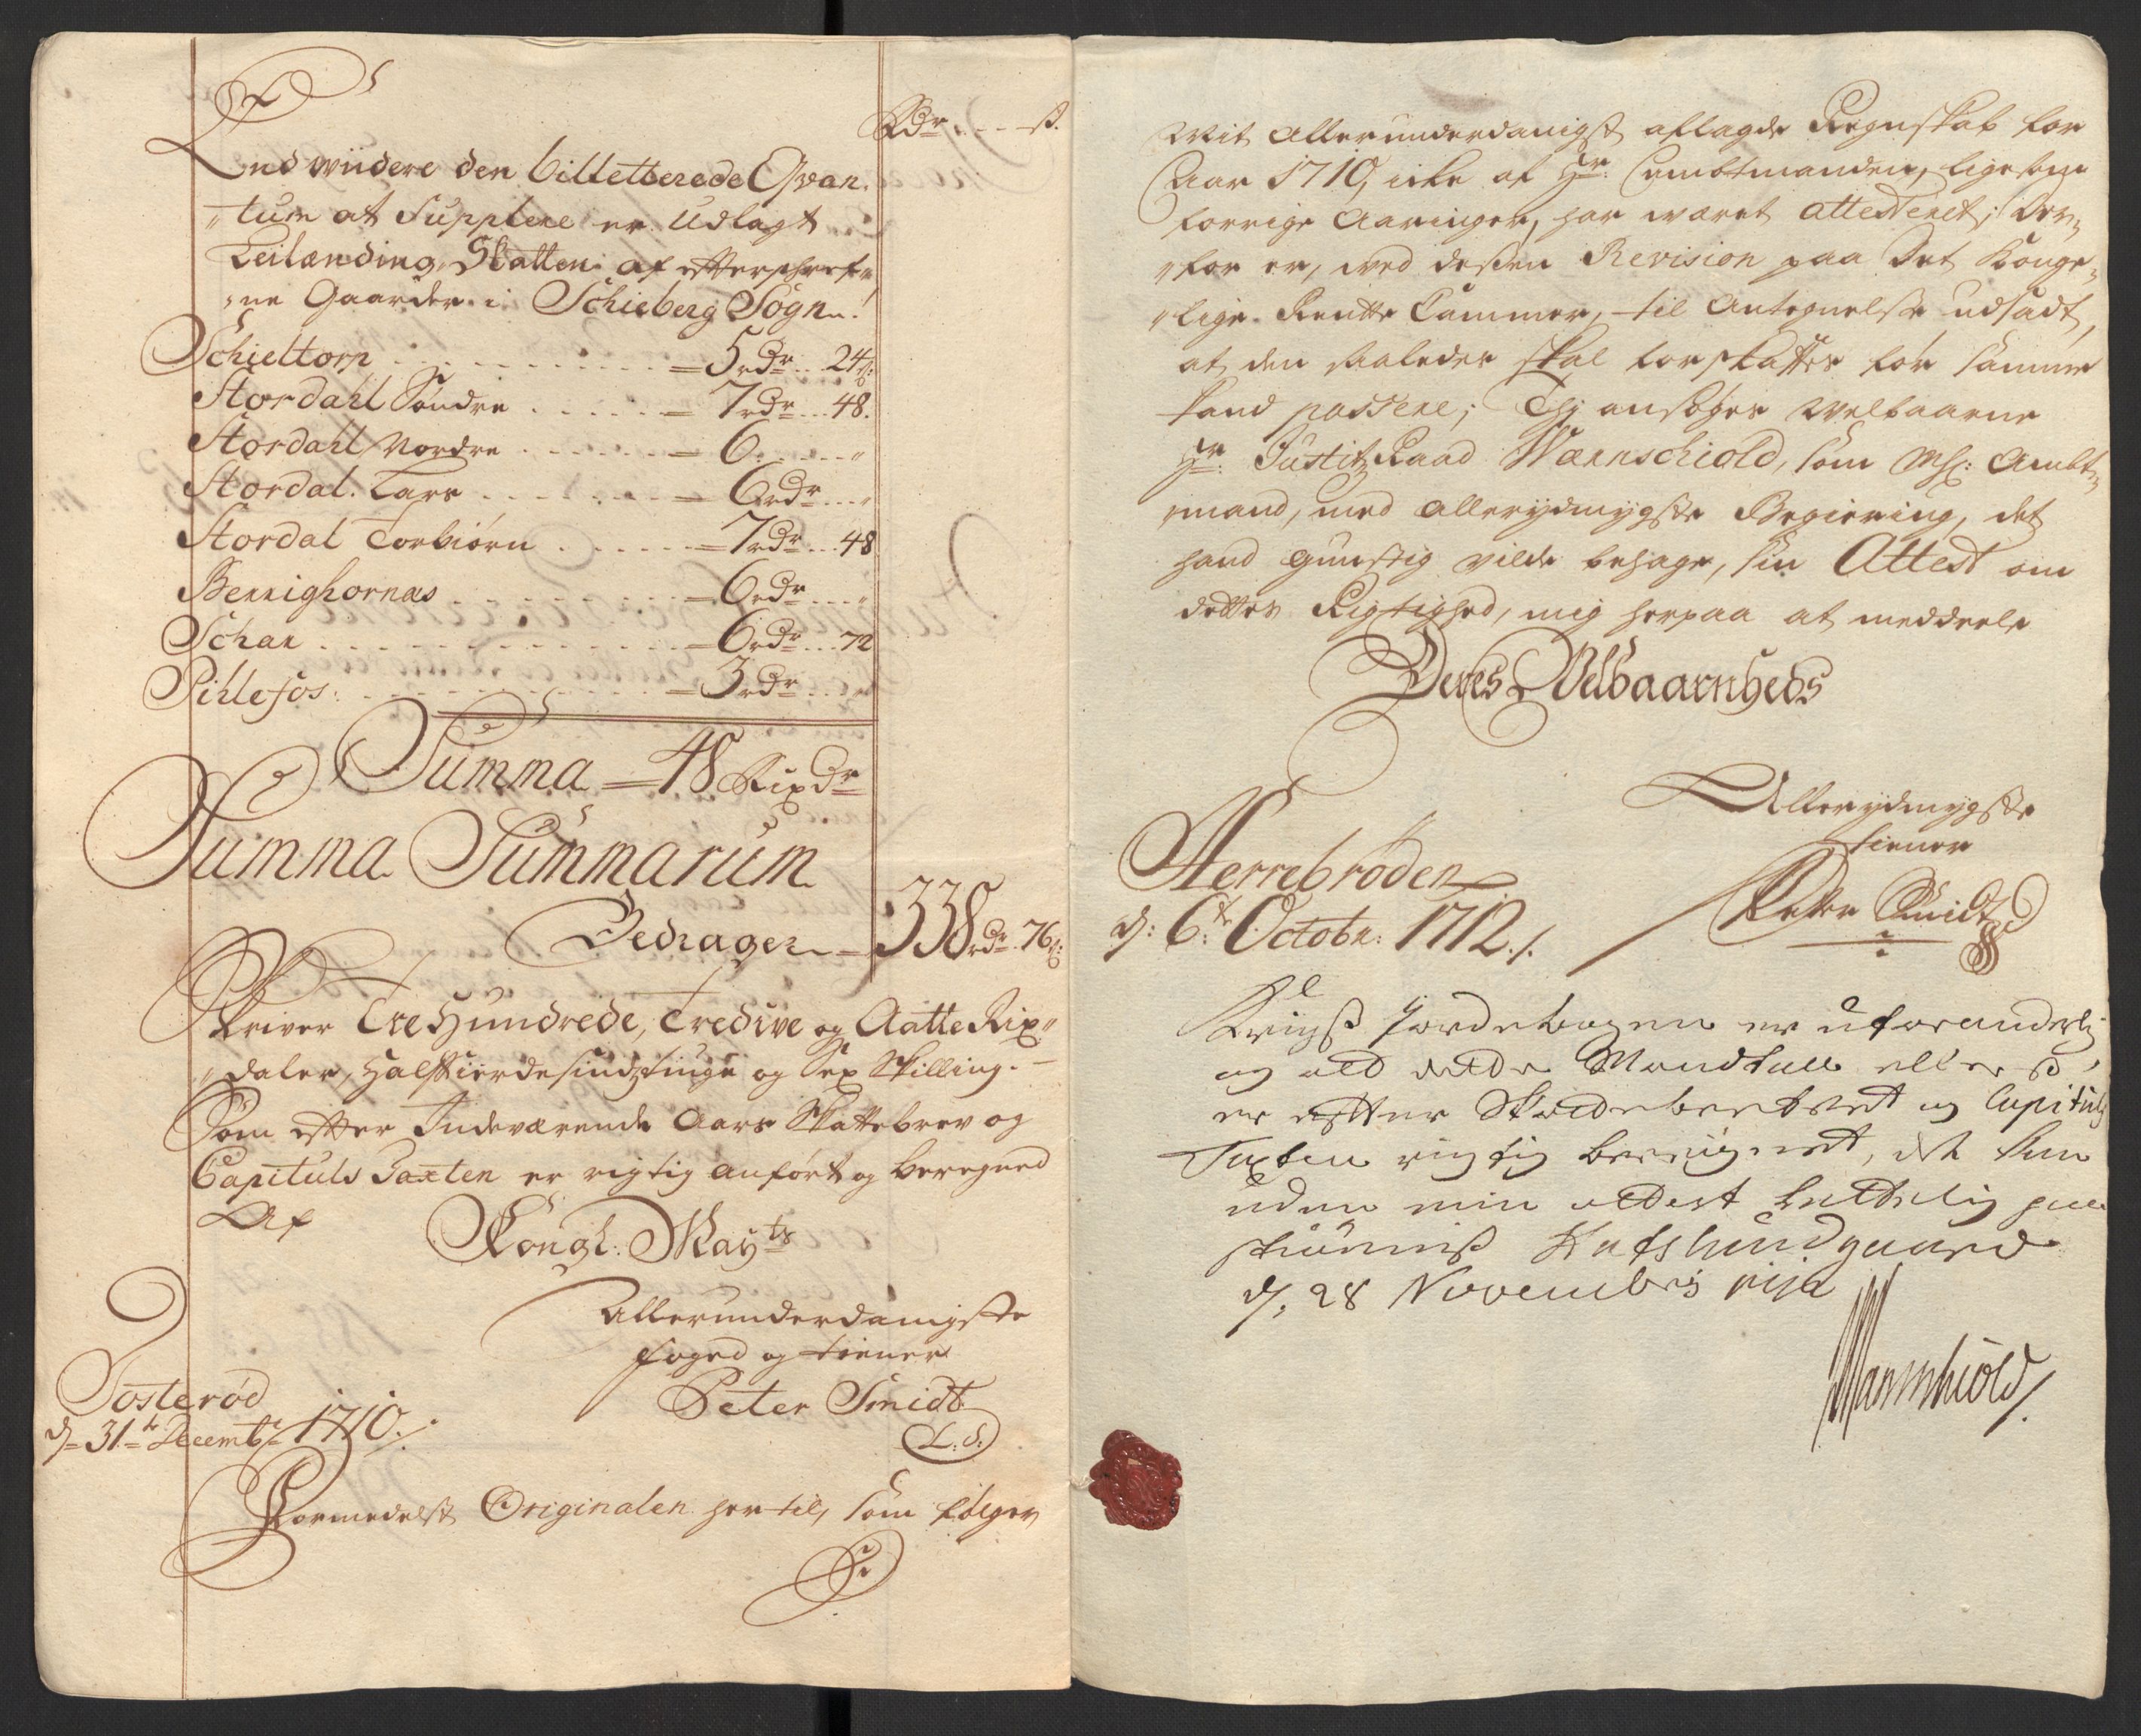 Rdr. – – – s.
End wiidere den billetterede Qvan-
„tum at Supplere er Udlagt
Leilænding Skatten af efterschref„
„ne Gaarder i Schieberg Sogn.
Schieltorp . . . . . . = 5 rdr. . 24 s:
Stordahl Søndre . . . . . = 7 rdr. . 48.
Stordahl Nordre . . . . . = 6. . . . „
Stordal. Lars . . . . . = 6 rdr. . . „
Stordal Torbiørn . . . . . = 7 rdr. . 48
Berrighornæs . . . . . = 6 rdr. . . „
Schar . . . . . . = 6 rdr. . . 72
Pihlefos: . . . . . . = 3 rdr. . . „
Summa = 48 Rixdr
Summa Summarum
Bedrager = 338 rdr. 76 s:
Skriver Tre Hundrede, Tredive og Aatte Rix„
„daler, Halffierdesindztiuge og Sex Skilling. –
Som efter Indeværende Aars Skattebrev og
Capituls Taxten er rigtig anført og beregned
Af
Kongl: Mayts
Allerunderdanigste
foged og tiener
Peter Smidt
L: S:
Tosterød
d= 31te Decembr 1710./.
Formedelst Originalen hertil, som følger
Mit allerunderdanigst aflagde Regnskab for
Aar 1710, icke af Hr: Ambtmanden, lige som
forrige Aaringer, har været attesteret; der„
„for er, ved dessen Revision paa det Konge„
„lige Rentte Cammer, til Antegnelse udsadt,
at den saaledes skal forskaffes før samme
kand passere; Thj ansøges Welbaarne
Hr: Justitz Raad Wærnschiold, som Ambt„
„mand, med allerydmygste Begiering, det
hand gunstig vilde behage, sin Attest om
dettes Rigtighed, mig herpaa at meddeele
Deres Velbaarnheds
Allerydmygste
tiener
Peter Smidt
Herrebrøden
d: 6te Octobr: 1712./.
Krigs Jordebogen er uforanderlig
og ald dette Mandtall
er efter Skattebrevet og Capituls
Taxten rigtig beregnet, det kun
uden min attest
Kafslundgaard
d: 28 Novembris 1712
Wærnschiold/.